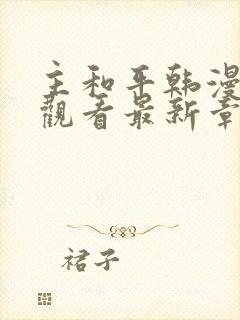 主和平韩漫
觀看最新章
裙子